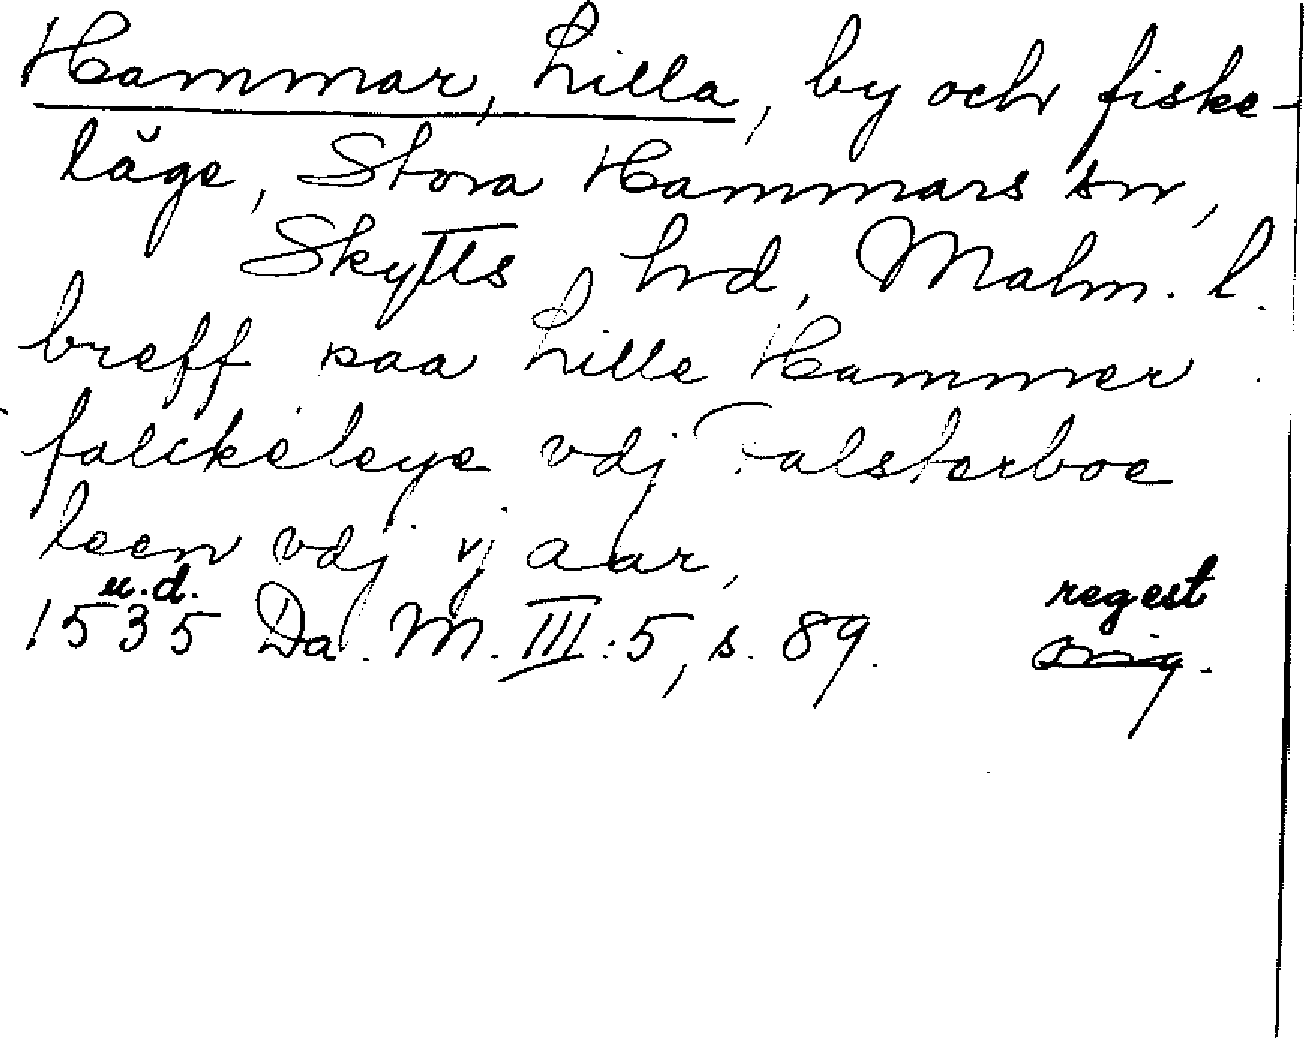 Hammar, Lilla, by och fiske-
läge, Stora Hammars sn,
Skytts hd, Malm. l.
breff paa Lille Hammer
falckeleye vdj Falsterboe
leen vdj vj aar,
u.d.
1535 Da. M. III:5, s. 89. regest
orig.